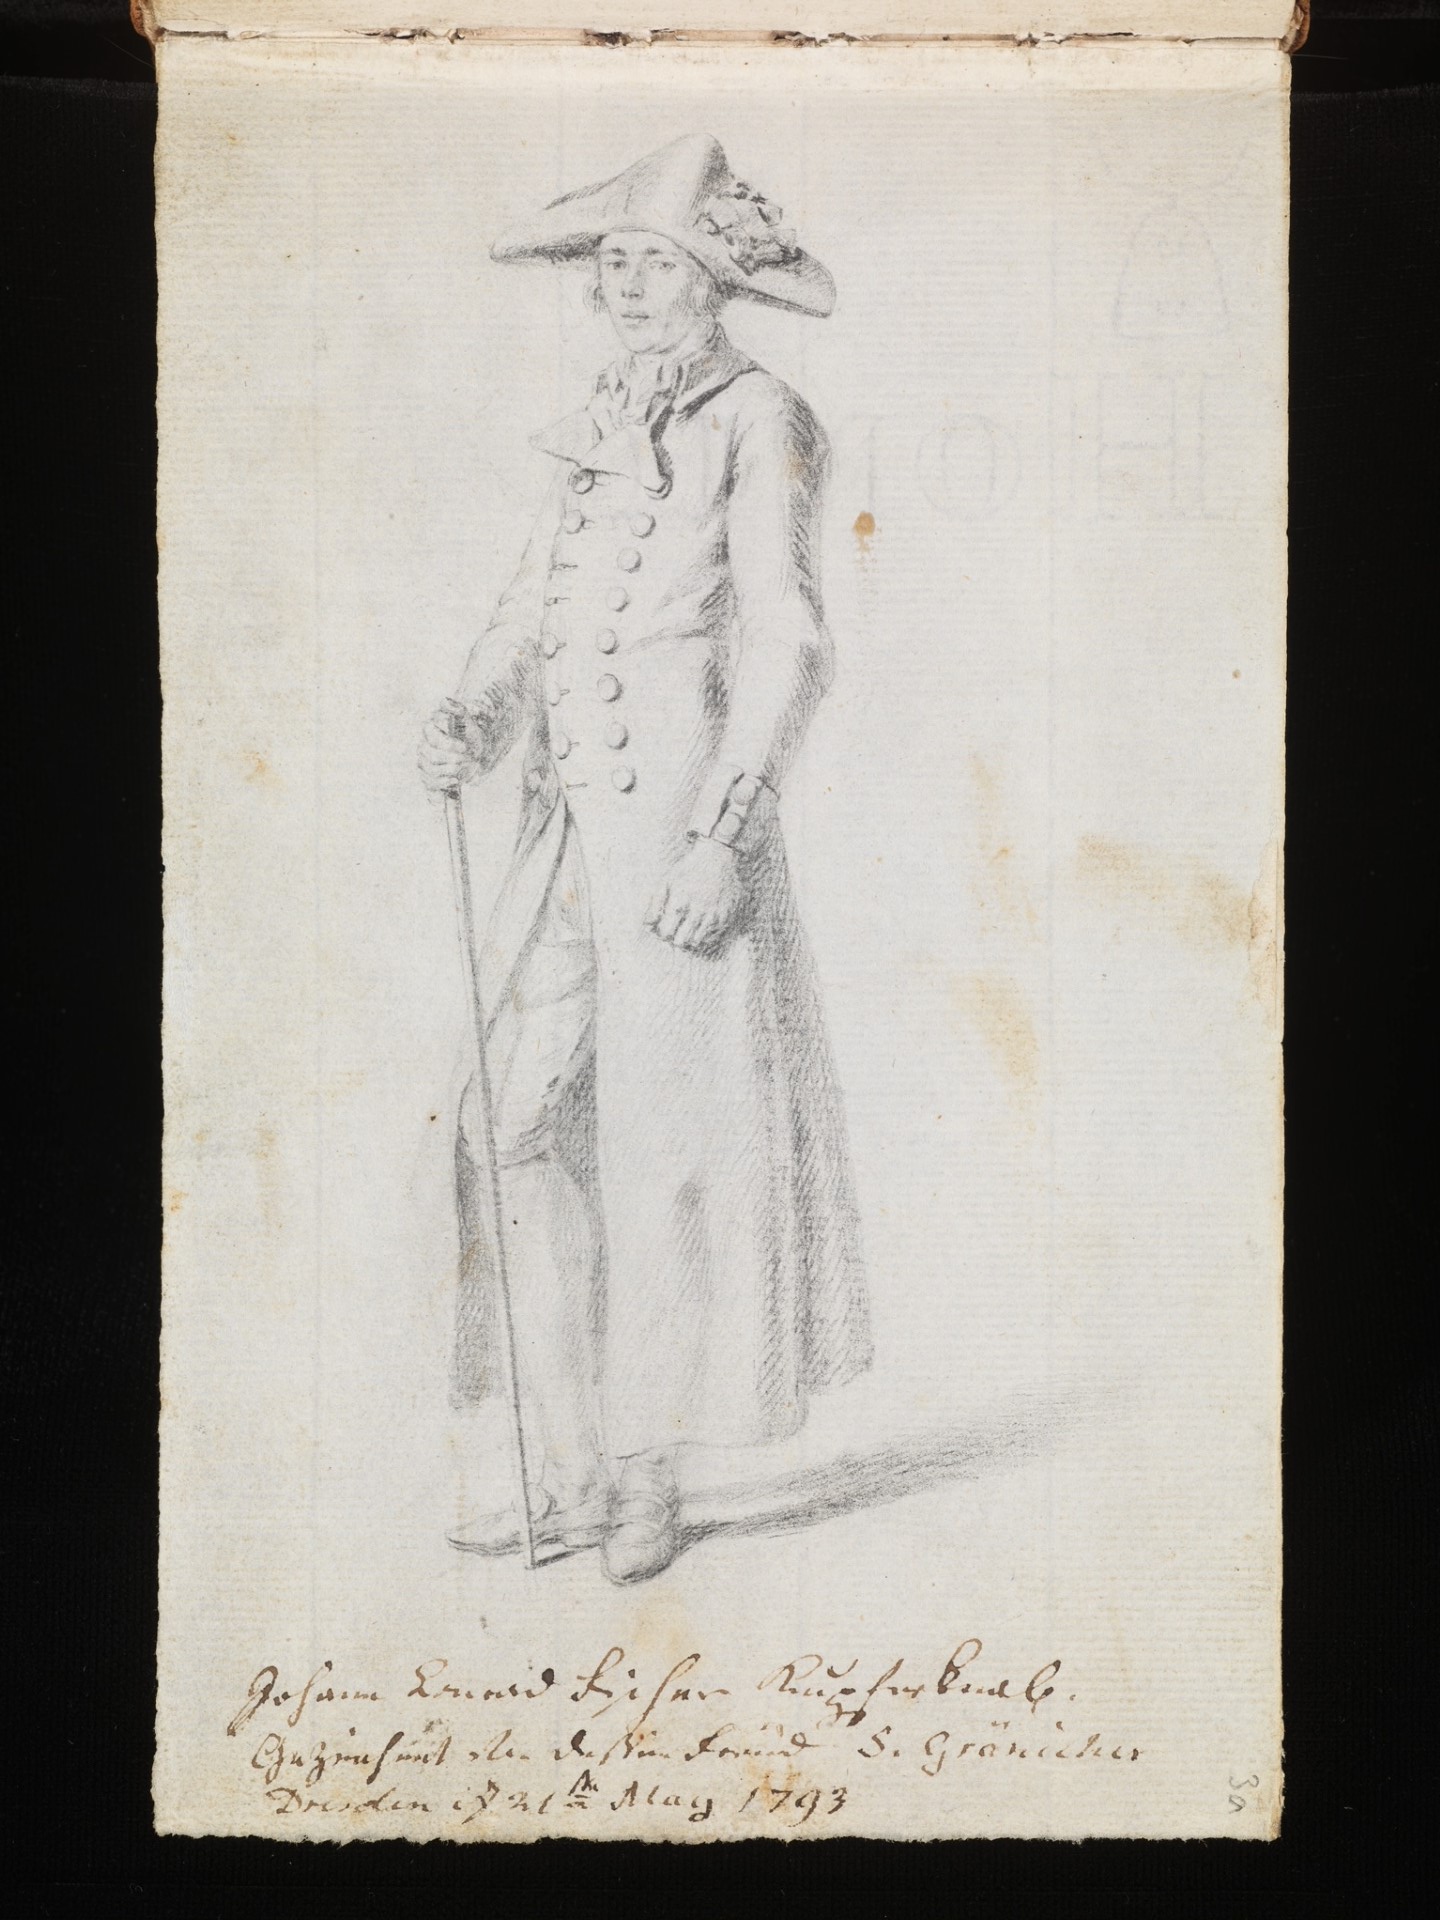 Johann Conrad Fischer Kupferknab.
Gezeichnet von dessen Freünd S. Gränicher
Dresden 21 May 1793
38